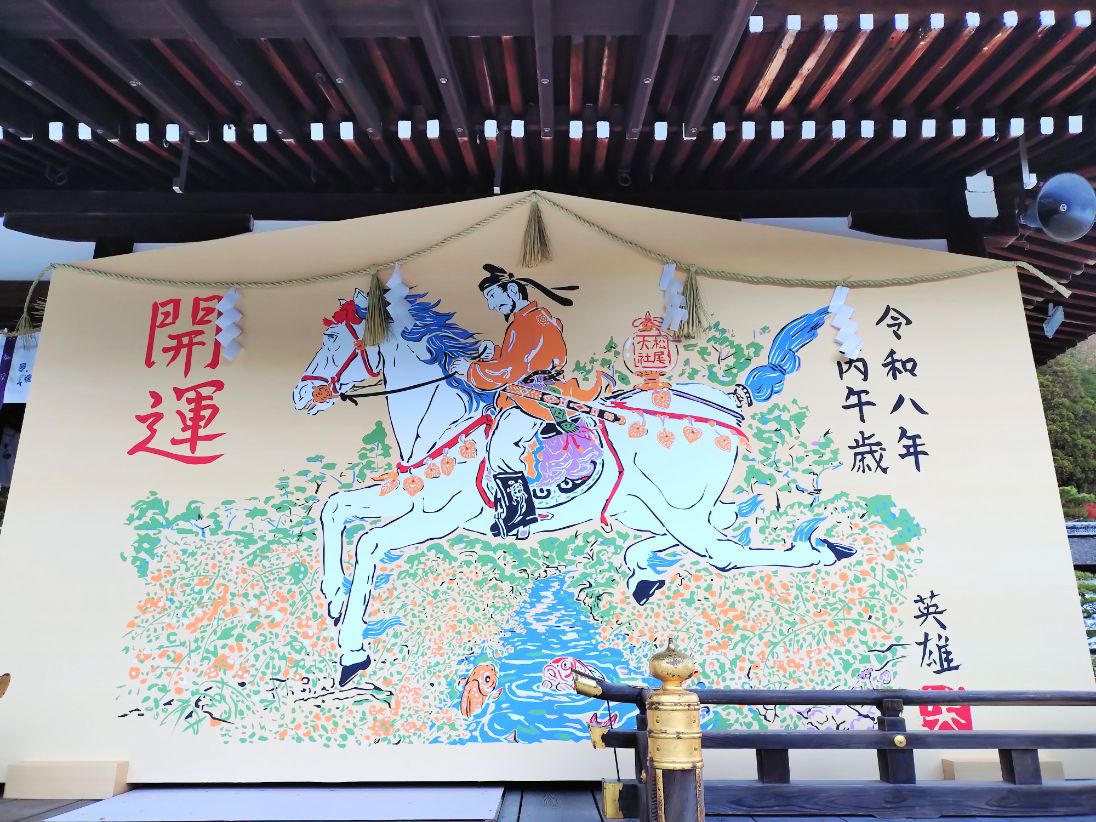 令和八年
丙午歳
松尾
大社
開運
英雄